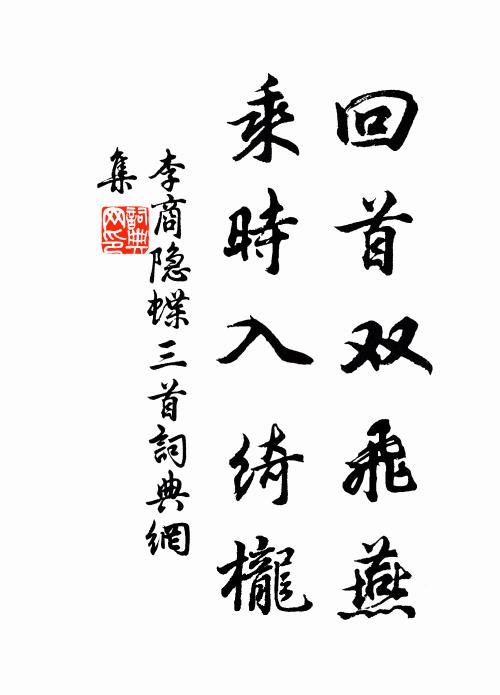 回首双飛燕
乘時入綺櫳
李商隐蝶三首詞典網
集
詞典网印